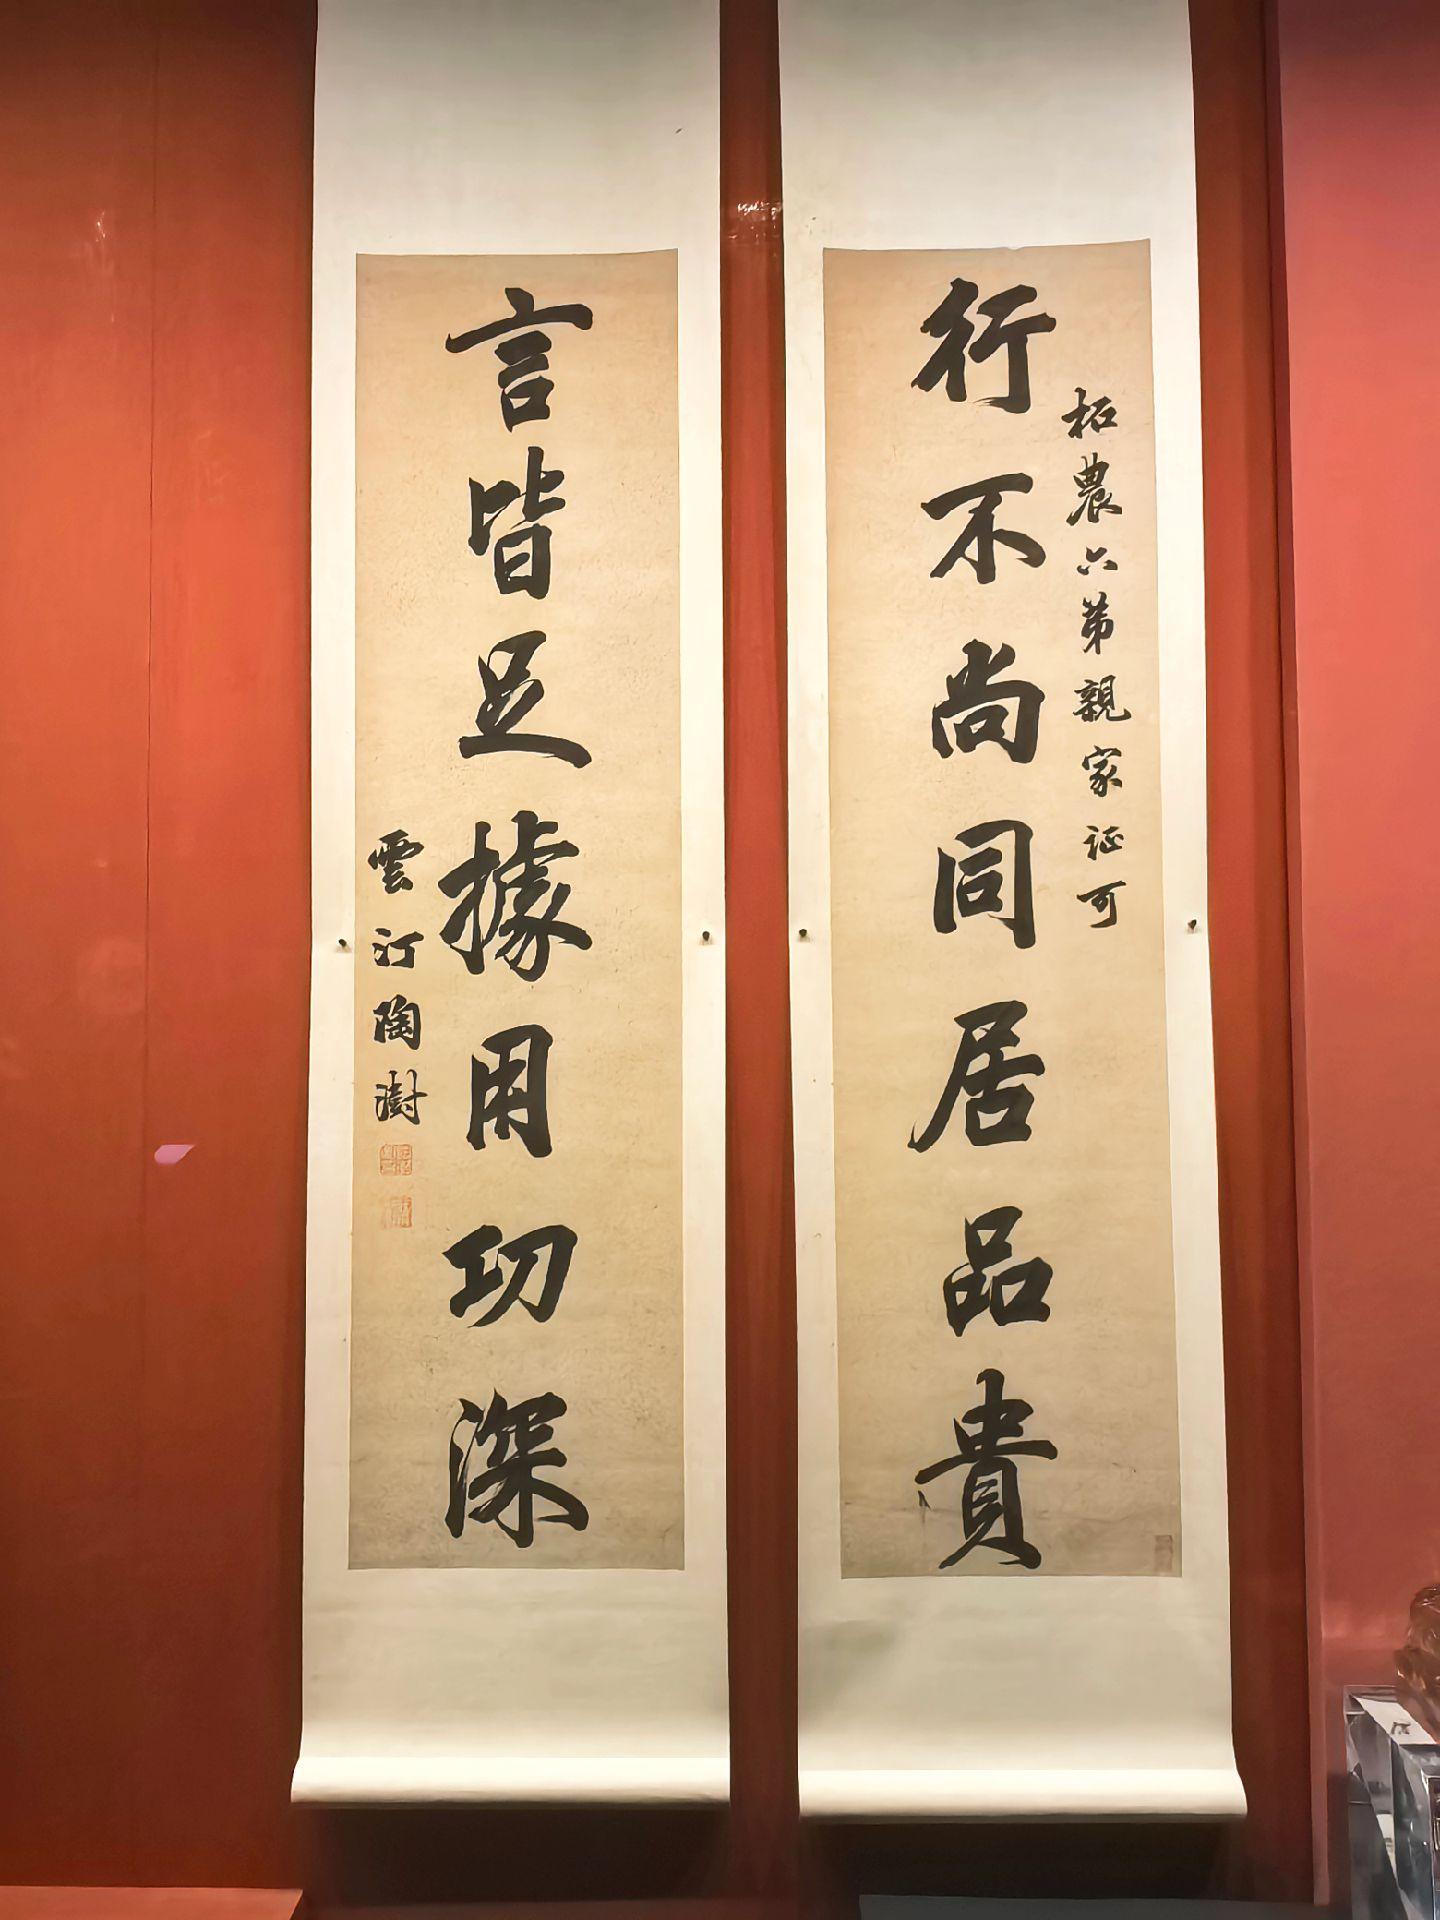 柘農六弟親家证可
行不尚同居品貴
言皆足據用功深
雲汀陶澍